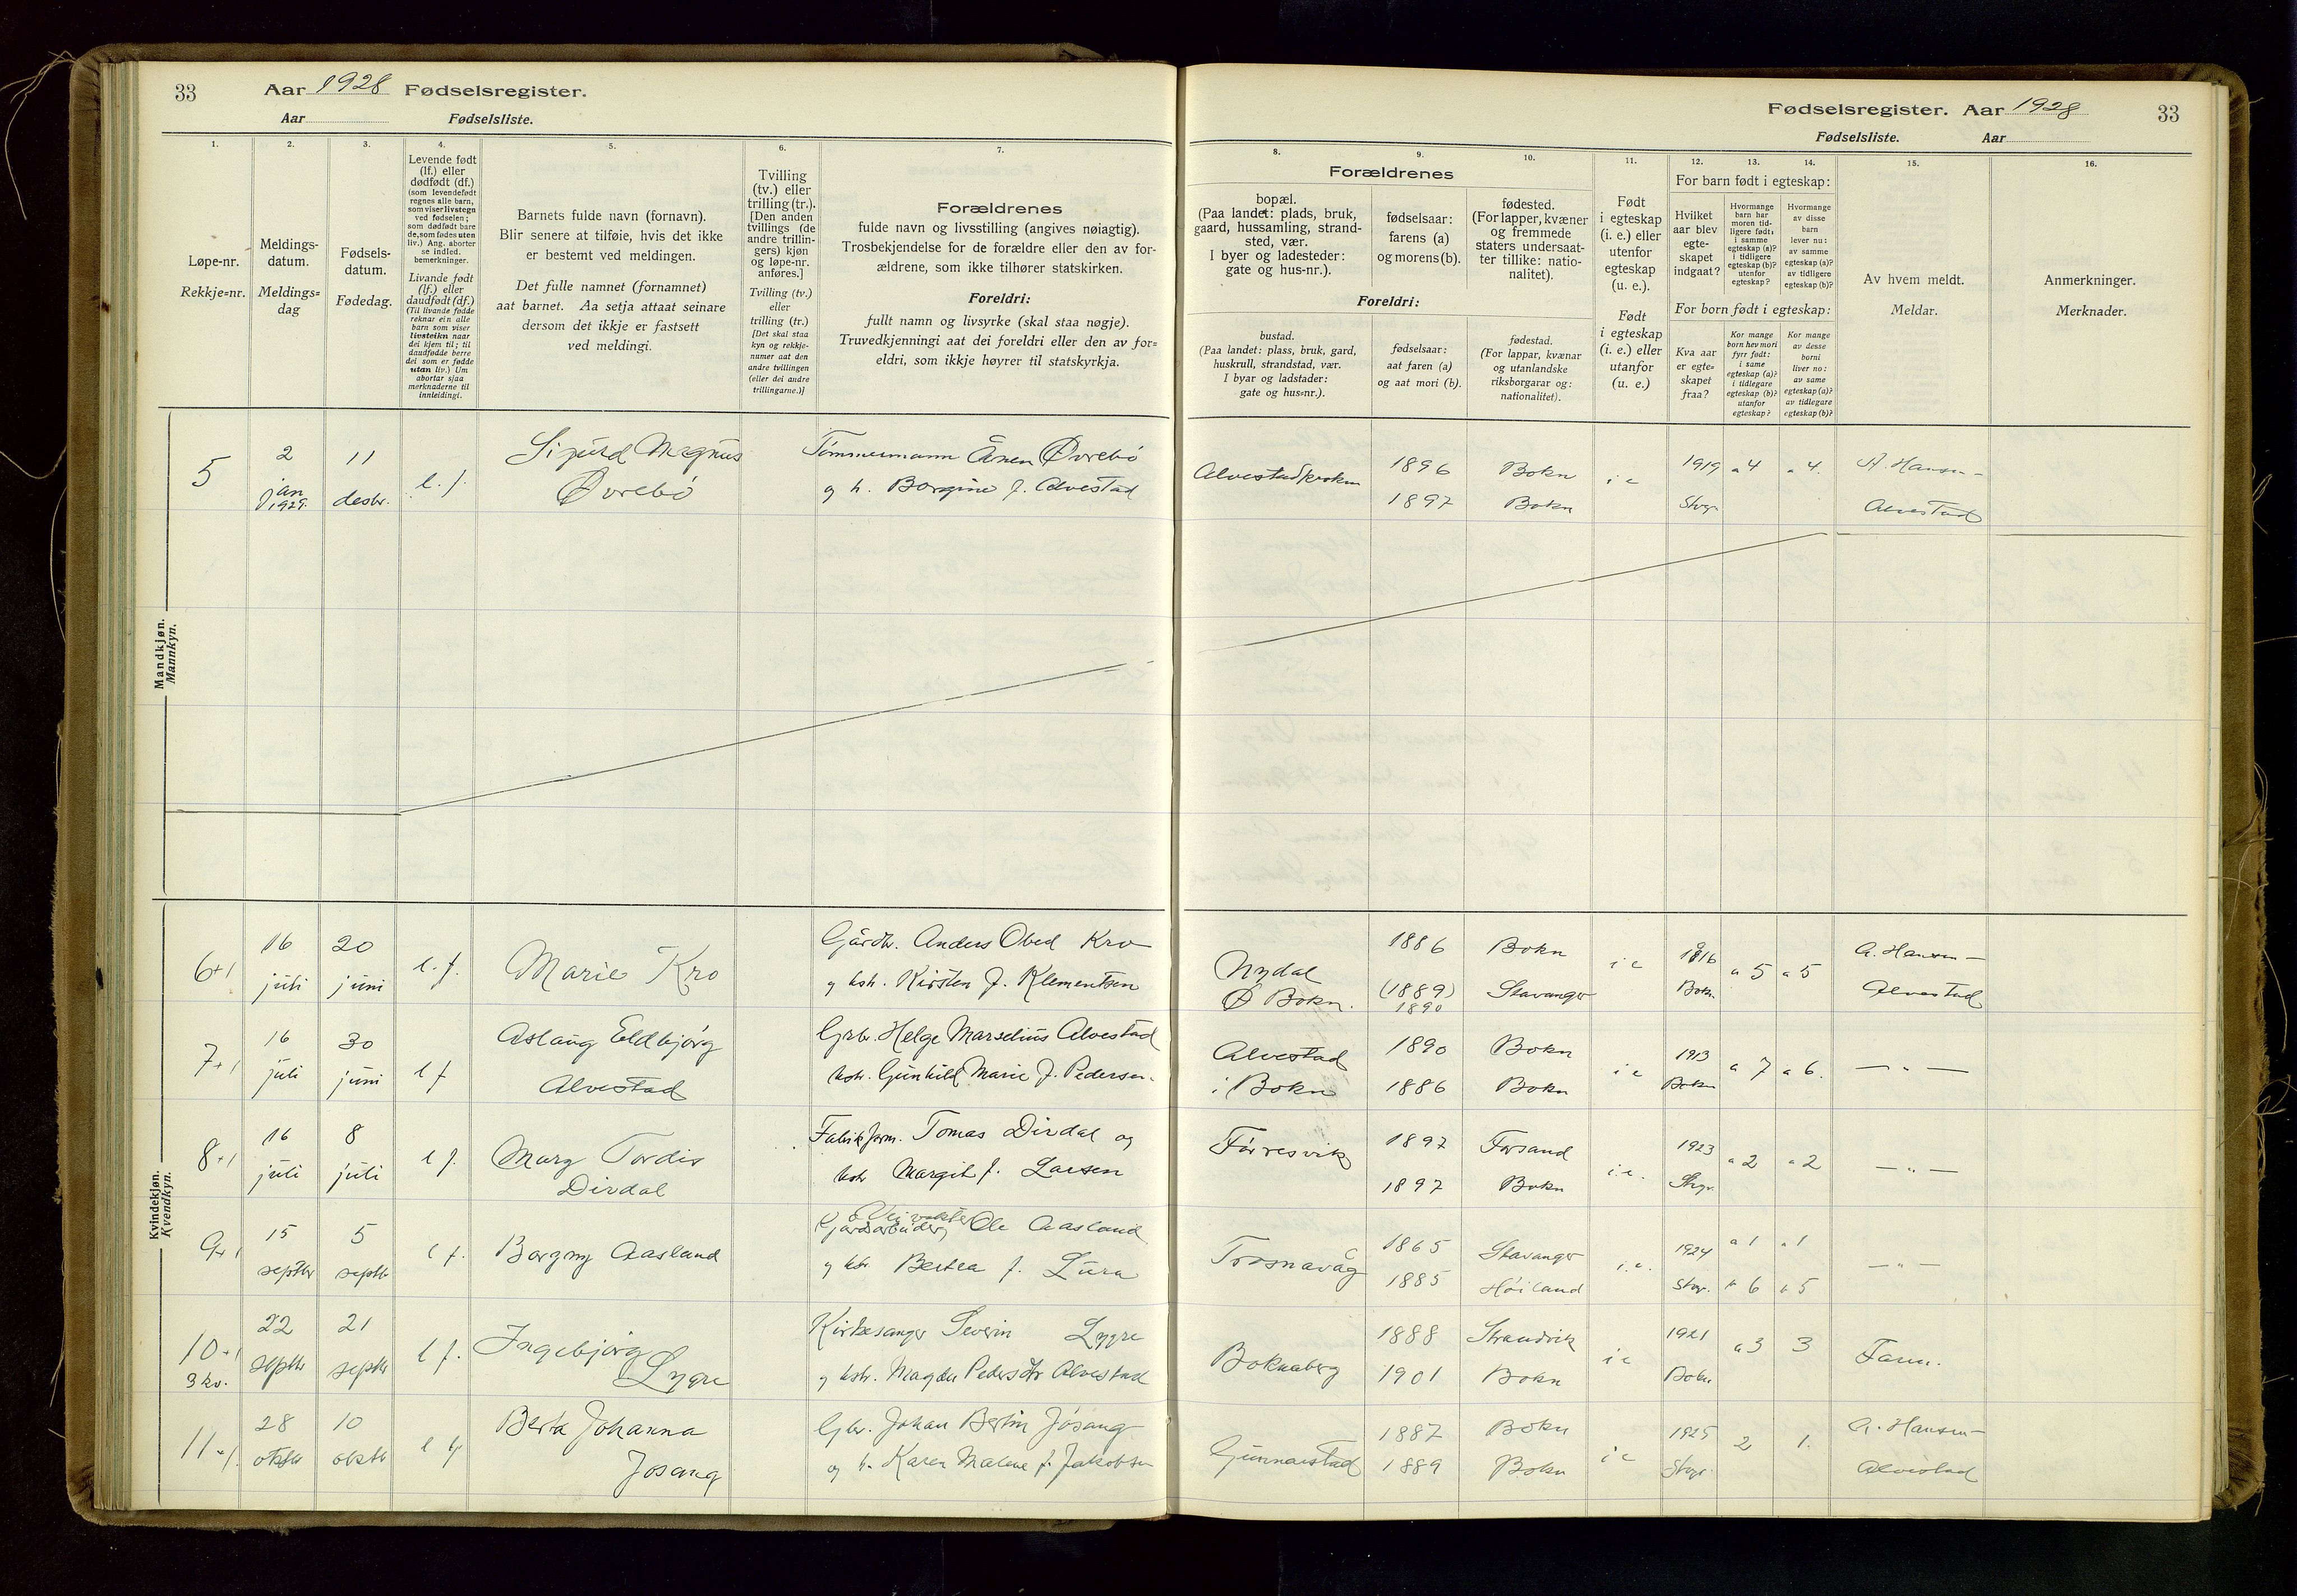 33 Aar 1928 Fødselsregister.
Aar Fødselsliste.
1.
Løpe-nr.
Rekkje=nr.
2.
Meldings-
datum.
Meldings=
dag
3.
Fødsels-
datum.
Fødedag.
4.
Levende født
(lf.) eller
dødfødt (df.)
(som levendefødt
regnes alle barn,
som viser livstegn
ved fødselen;
som dødfødt bare
de, som fødes uten
liv.) Ang. aborter
se indled.
bemerkninger.
Livande født
(lf.) eller
daudfødt (df.)
(Til livande fødde
reknar ein alle
barn som viser
livsteikn naar
dei kjem til; til
daudfødde berre
dei som er fødde
utan liv.) Um
abortar sjaa
merknaderne til
innleidingi.
5.
Barnets fulde navn (fornavn).
Blir senere at tilføie, hvis det ikke
er bestemt ved meldingen.
Det fulle namnet (fornamnet)
aat barnet. Aa setja attaat seinare
dersom det ikkje er fastsett
ved meldingi.
6.
Tvilling
(tv.) eller
trilling (tr.).
[Den anden
tvillings (de
andre trillin-
gers) kjøn
og løpe-nr.
anføres.]
Tvilling (tv.)
eller
trilling (tr.)
[Det skal staa
kyn og rekkje-
numer aat den
andre tvillingen
(eller dei andre
trillingarne.)]
7.
Forældrenes
fulde navn og livsstilling (angives nøiagtig).
Trosbekjendelse for de forældre eller den av for-
ældrene, som ikke tilhører statskirken.
Foreldri:
fullt namn og livsyrke (skal staa nøgje).
Truvedkjenningi aat dei foreldri eller den av for=
eldri, som ikkje høyrer til statskyrkja.
Fødselsregister. Aar 1928 33
Fødselsliste. Aar
8.
Forældrenes
bopæl.
(Paa landet: plads, bruk,
gaard, hussamling, strand-
sted, vær.
I byer og ladesteder:
gate og hus-nr.).
Foreldri:
bustad.
(Paa landet: plass, bruk, gard,
huskrull, strandstad, vær.
I byar og ladstader:
gate og hus=nr.).
9.
fødselsaar:
farens (a)
og morens (b).
fødselsaar:
aat faren (a)
og aat mori (b).
10.
fødested.
(For lapper, kvæner
og fremmede
staters undersaat-
ter tillike: natio-
nalitet).
fødestad.
(For lappar, kvænar
og utanlandske
riksborgarar og:
nationalitet).
11.
Født
i egteskap
(i. e.) eller
utenfor
egteskap
(u. e.).
Født
i egteskap
(i. e.) eller
utanfor
(u. e.)
12. 13. 14.
For barn født i egteskap:
Hvilket
aar blev
egte-
skapet
indgaat?
Hvormange
barn har
moren tid-
ligere født:
i samme
egteskap (a)?
i tidligere
egteskap (b)?
utenfor
egteskap?
Hvormange
av disse
barn
lever nu:
av samme
egteskap (a)?
av tidligere
egteskap (b)?
For born født i egteskap:
Kva aar
er egte=
skapet
fraa?
Kor mange
born hev mori
fyrr født:
i same
egteskap (a)?
i tidlegare
egteskap (b)?
utanfor
egteskap?
Kor mange
av desse
borni
liver no:
av same
egteskap (a)?
av tidlegare
egteskap (b)?
15.
Av hvem meldt.
Meldar.
16.
Anmerkninger.
Merknader.
Mandkjøn.
Mannkyn.
5 2 jan 1929. 11 desbr. l. f. Sigurd Magnus Øvrebö
Tömmermann Øvrebö
og h. Borgine f. Alvestad
1896 Bokn i e 1919 a 4 a 4. A. Hansen
1897 Bokn Stvgr. Alvestad
Kvindekjøn.
Kvendkyn.
6+1 16 juli 20 juni l. f. Marie Kro
Gårdbr. Anders Obed Kro
og hstr. Kirsten f. Klementsen
Nydal 1886 Bokn i e 1916 a 5 a 5 A. Hansen
Ø Bokn. (1889) 1890 Stavanger Bokn Alvestad
7+1 16 juli 30 juni l f Aslaug Eldbjörg
Alvestad
Grbr. Helge Marselius Alvestad
hstr. Gunhild Marie f. Pedersen.
Alvestad 1890 Bokn i e 1913 a 7 a 6. — " —
i Bokn 1886 Bokn Bokn
8+1 16 juli 8 juli l f. Marg Tordis
Dirdal
Fabrikform. Tomas Dirdal og
hstr Margit f. Larsen
Förresvik 1897 Forsand i. e. 1923 a 2 a 2 — " —
1897 Bokn Stvgr.
9+1 15 septbr 5 septb l f. Borgny Aasland
& Veivokter
Gårdsarbeider, Ole Aasland
og hstr. Bertea f. Lura
Trosnavåg 1865 Stavanger i. e. 1924 a 1 a 1 — " —
1885 Höiland Stvgr. b 6 b 5
10+1 22 septbr 21 septbr l f. Ingebjörg
3 kv. Lygre
Kirkesanger Severin Lygre
og hstr. Magda Pedersdtr Alvestad
Boknaberg 1888 Strandvik i e 1921 a 3 3 Faren.
1901 Bokn Bokn
11+1. 28 oktbr 10 oktbr l f Berta Johanna
Josang
Gbr. Johan Bertin Jösang
og h. Karen Malene f. Jakobsen
Gunnarstad 1887 Bokn i e 1925 2 1. A. Hansen
1889 Bokn Stvgr. Alvestad